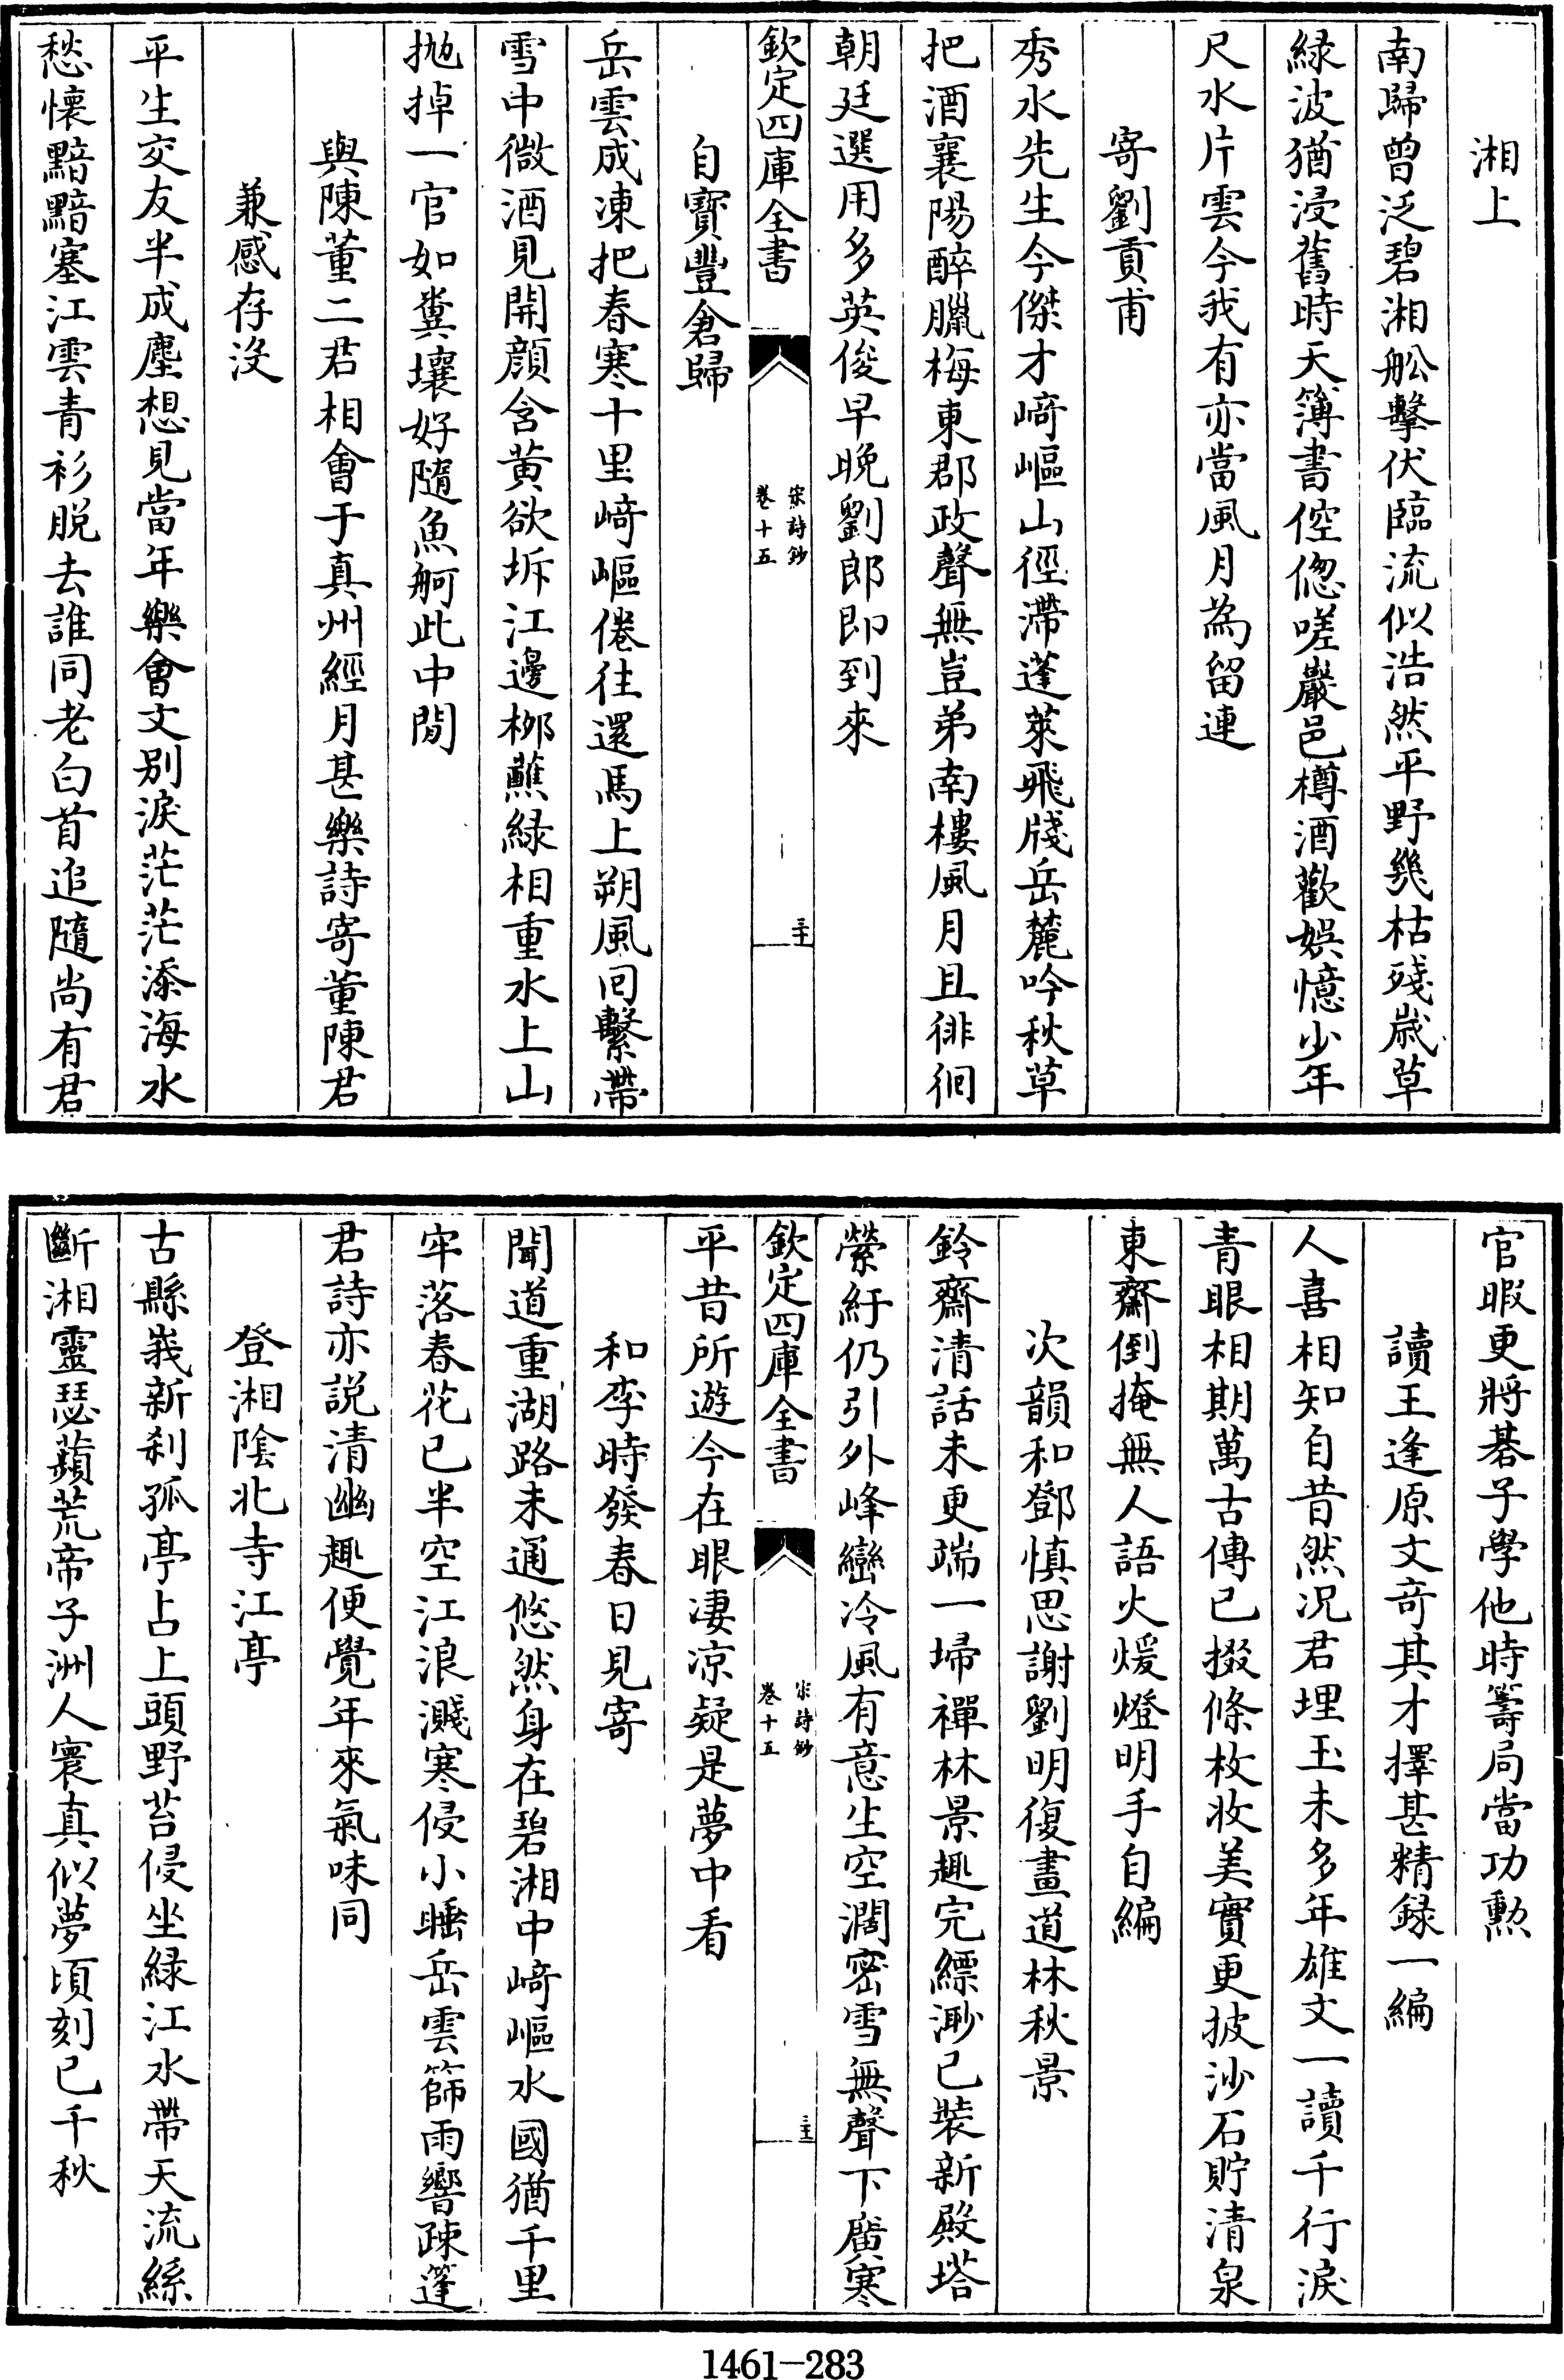 湘上
南歸曾泛碧湘舩擊伏臨流似浩然平野幾枯殘歲草
緑波猶浸舊時天簿書倥偬嗟巖邑樽酒歡娯憶少年
尺水片雲今我有亦當風月為留連
寄劉貢甫
秀水先生今傑才﨑嶇山徑滯蓬萊飛牋岳麓吟秋草
把酒襄陽醉臘梅東郡政聲無豈弟南樓風月且徘徊
朝廷選用多英俊早晚劉郎即到來
欽定四庫全書
宋詩鈔
卷十五
三十
自寳豐倉歸
岳雲成凍把春寒十里﨑嶇倦往還馬上朔風囘繫帶
雪中微酒見開顔含黄欲坼江邊栁蘸緑相重水上山
抛掉一官如糞壤好隨魚舸此中閒
與陳董二君相會于真州經月甚樂詩寄董陳君
兼感存沒
平生交友半成塵想見當年樂會文别淚茫茫添海水
愁懷黯黯塞江雲青衫脱去誰同老白首追隨尚有君
官暇更將碁子學他時籌局當功勲
讀王逢原文奇其才擇甚精録一編
人喜相知自昔然况君埋玉未多年雄文一讀千行淚
青眼相期萬古傳已掇條枚收美實更披沙石貯清泉
東齋倒掩無人語火煖燈明手自編
次韻和鄧慎思謝劉明復畫道林秋景
鈴齋清話未更端一埽禪林景趣完縹渺已裝新殿塔
縈紆仍引外峰巒冷風有意生空濶密雪無聲下廣寒
欽定四庫全書
宋詩鈔
卷十五
三十一
平昔所遊今在眼凄凉疑是夢中看
和李時發春日見寄
聞道重湖路未通悠然身在碧湘中﨑嶇水國猶千里
牢落春花已半空江浪濺寒侵小睡岳雲篩雨響疎篷
君詩亦説清幽趣便覺年來氣味同
登湘隂北寺江亭
古縣峩新刹孤亭占上頭野苔侵坐緑江水帶天流絲
斷湘靈瑟蘋荒帝子洲人寰真似夢頃刻已千秋
1461—283